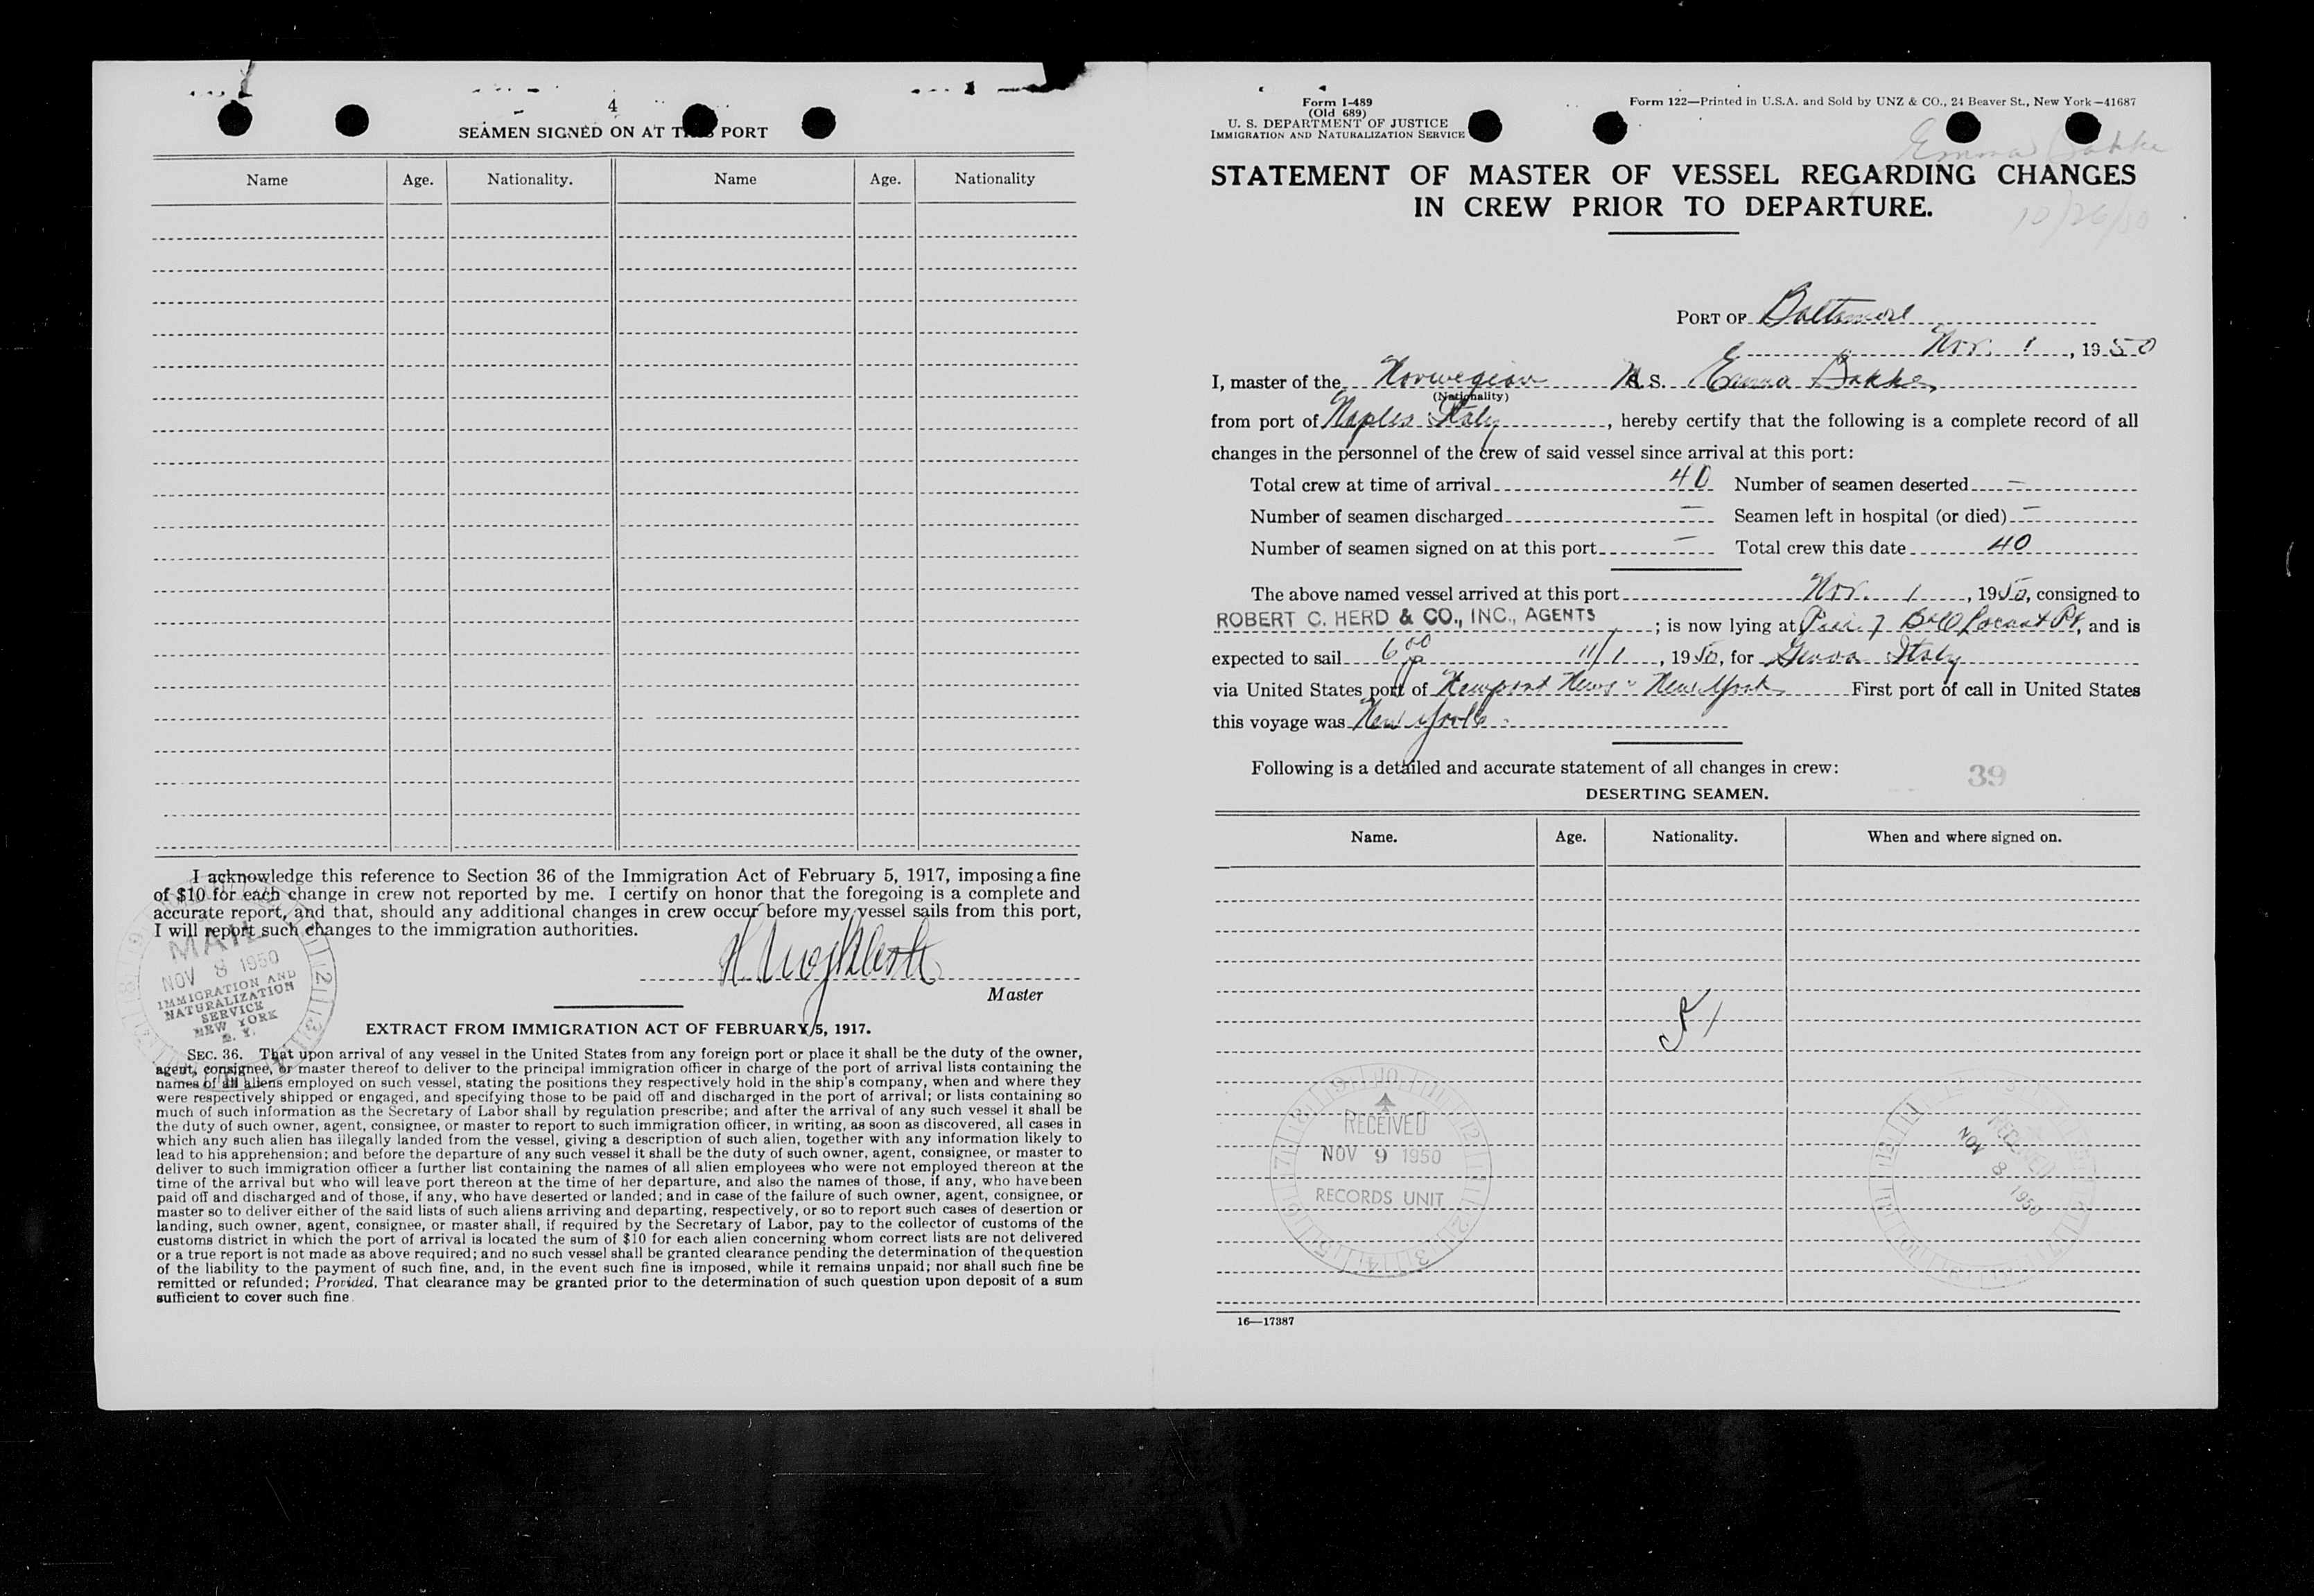 4
SEAMEN SIGNED ON AT THIS PORT
Name Age. Nationality. Name Age. Nationality
I acknowledge this reference to Section 36 of the Immigration Act of February 5, 1917, imposing a fine
of $10 for each change in crew not reported by me. I certify on honor that the foregoing is a complete and
accurate report, and that, should any additional changes in crew occur before my vessel sails from this port,
I will report such changes to the immigration authorities.
MAIL
NOV 8 1950
IMMIGRATION AND
NATURALIZATION
SERVICE
NEW YORK
N. Y.
Master
EXTRACT FROM IMMIGRATION ACT OF FEBRUARY 5, 1917.
SEC. 36. That upon arrival of any vessel in the United States from any foreign port or place it shall be the duty of the owner,
agent, consignee, or master thereof to deliver to the principal immigration officer in charge of the port of arrival lists containing the
names of all aliens employed on such vessel, stating the positions they respectively hold in the ship's company, when and where they
were respectively shipped or engaged, and specifying those to be paid off and discharged in the port of arrival; or lists containing so
much of such information as the Secretary of Labor shall by regulation prescribe; and after the arrival of any such vessel it shall be
the duty of such owner, agent, consignee, or master to report to such immigration officer, in writing, as soon as discovered, all cases in
which any such alien has illegally landed from the vessel, giving a description of such alien, together with any information likely to
lead to his apprehension; and before the departure of any such vessel it shall be the duty of such owner, agent, consignee, or master to
deliver to such immigration officer a further list containing the names of all alien employees who were not employed thereon at the
time of the arrival but who will leave port thereon at the time of her departure, and also the names of those, if any, who have been
paid off and discharged and of those, if any, who have deserted or landed; and in case of the failure of such owner, agent, consignee, or
master so to deliver either of the said lists of such aliens arriving and departing, respectively, or so to report such cases of desertion or
landing, such owner, agent, consignee, or master shall, if required by the Secretary of Labor, pay to the collector of customs of the
customs district in which the port of arrival is located the sum of $10 for each alien concerning whom correct lists are not delivered
or a true report is not made as above required; and no such vessel shall be granted clearance pending the determination of the question
of the liability to the payment of such fine, and, in the event such fine is imposed, while it remains unpaid; nor shall such fine be
remitted or refunded; Provided, That clearance may be granted prior to the determination of such question upon deposit of a sum
sufficient to cover such fine.
Form I-489
(Old 689)
U. S. DEPARTMENT OF JUSTICE
IMMIGRATION AND NATURALIZATION SERVICE
Form 122—Printed in U.S.A. and Sold by UNZ & CO., 24 Beaver St., New York—41687
Emma Bakke
10/26/50
STATEMENT OF MASTER OF VESSEL REGARDING CHANGES
IN CREW PRIOR TO DEPARTURE.
PORT OF Baltimore
Nov. 1, 1950
I, master of the Norwegian M.S. Emma Bakke,
(Nationality)
from port of Naples Italy, hereby certify that the following is a complete record of all
changes in the personnel of the crew of said vessel since arrival at this port:
Total crew at time of arrival 40 Number of seamen deserted —
Number of seamen discharged — Seamen left in hospital (or died) —
Number of seamen signed on at this port — Total crew this date 40
The above named vessel arrived at this port Nov. 1, 1950, consigned to
ROBERT C. HERD & CO., INC., AGENTS; is now lying at Pier 7 B&O Locust Pt, and is
expected to sail 6 00 p 11/1, 1950, for Genoa Italy
via United States port of Newport News - New York First port of call in United States
this voyage was New York.
Following is a detailed and accurate statement of all changes in crew:
39
DESERTING SEAMEN.
Name. Age. Nationality. When and where signed on.
RECEIVED
NOV 9 1950
RECORDS UNIT
RECEIVED
NOV 8 1950
16—17387